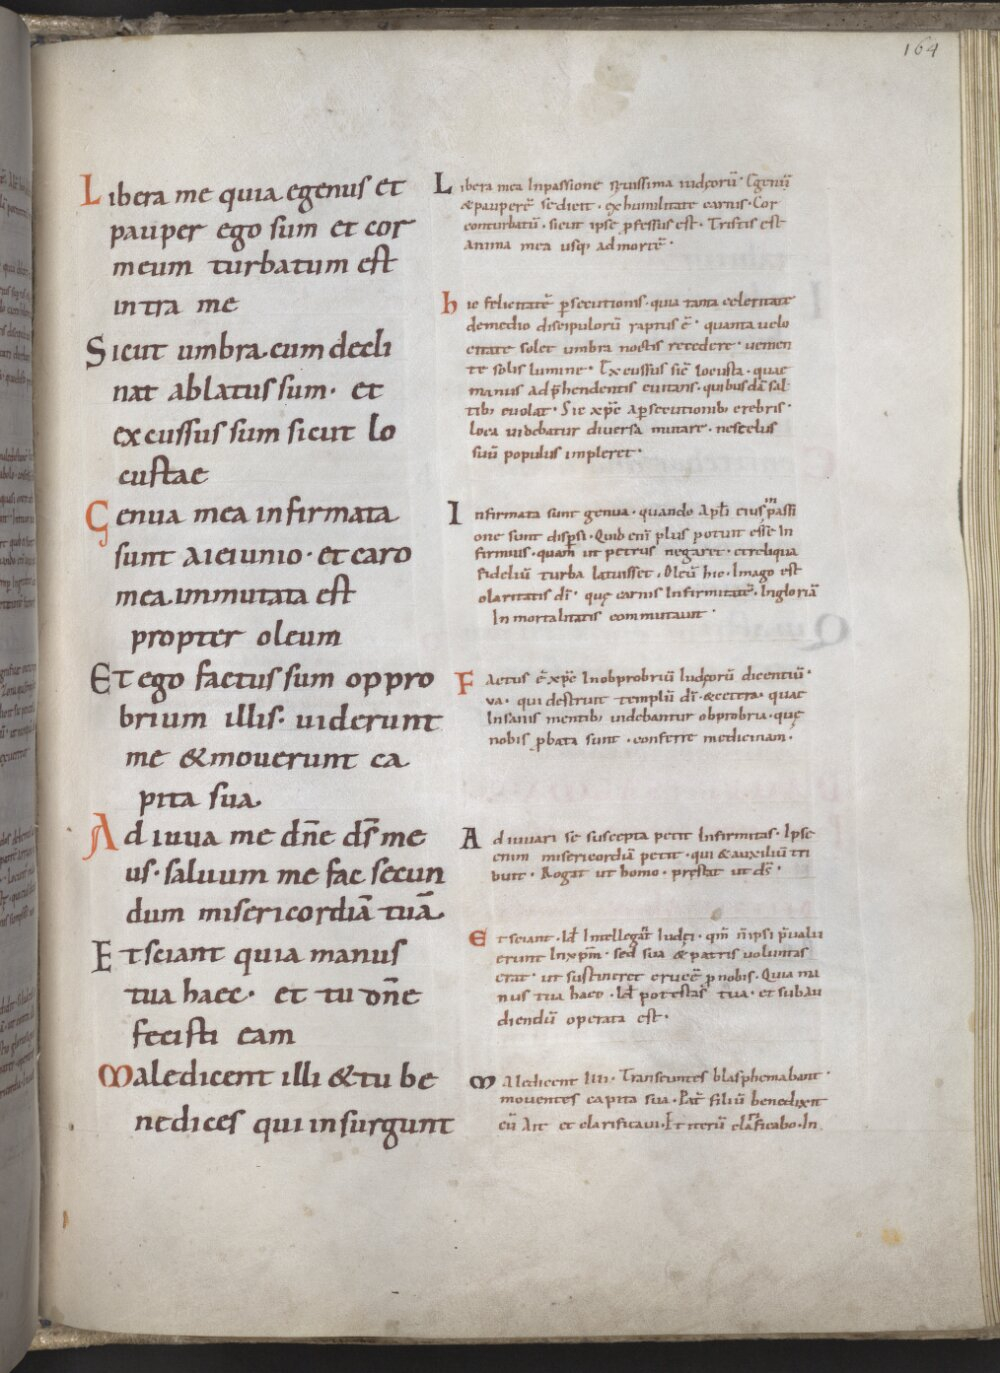 164
Libera me quia egenus et
pauper ego sum et cor
meum turbatum est
intra me
Sicut umbra cum decli
nat ablatus sum · et
excussus sum sicut lo
custae
Genua mea infirmata
sunt a ieiunio · et caro
mea inmutata est
propter oleum
Et ego factus sum oppro
brium illis · uiderunt
me & mouerunt ca
pita sua
Adiuua me dñe dš me
us · saluum me fac secun
dum misericordiā tuā
Et sciant quia manus
tua haec · et tu dñe
fecisti eam
Maledicent illi & tu be
nedices qui insurgunt
Libera mea In passione seuissima iudęorū · Egenū
& pauperē se dicit · ex humilitate carnis · Cor
conturbatū · sicut ipse pfessus est · Tristis est
anima mea usq; ad mortē ·
hic felicitatē psecutionis · quia tanta celeritate
de medio discipulorū raptus ē · quanta uelo
citate solet umbra noctis recedere · uenien
te solis lumine · Excussus sic̄ locusta · quae
manus adphendentis euitans · quibusdā sal
tib; euolat · Sic xp̄c a psecutionib; crebris ·
loca uidebatur diuersa mutare · ne scelus
suū populus impleret ·
Infirmata sunt genua · quando apłi eius in passi
one sunt dispsi · Quid enī plus potuit esse in
firmius · quam ut petrus negaret · et reliqua
fidelium turba latuisset · Oleū hic · Imago est
claritatis dī · quę carnis Infirmitatē · Ingloriā
In mortalitatis commutauit ·
Factus ē xp̄c In obprobriū Iudęorū dicentiū ·
va · qui destruit templū dī · & cetera · quae
Insanis mentib; uidebantur obprobria · quę
nobis pbata sunt · conferre medicinam ·
Adiuuari se suscepta petit Infirmitas · Ipse
enim misericordiā petit · qui & auxiliū tri
buit · Rogat ut homo · pręstat ut dš ·
Et sciant · Id Intellegant Iudęi · qm̄ n̄ ipsi pualu
erunt In xpm̄ · sed sua & patris uoluntas
erat · ut sustineret crucē p nobis · Quia ma
nus tua haec · Id potestas tua · et subau
diendū operata est ·
Maledicent illi · Transeuntes blasphemabant ·
mouentes capita sua · Pat̄ filiū benedixit
cū Ait et clarificaui · Et iterū clarificabo · In